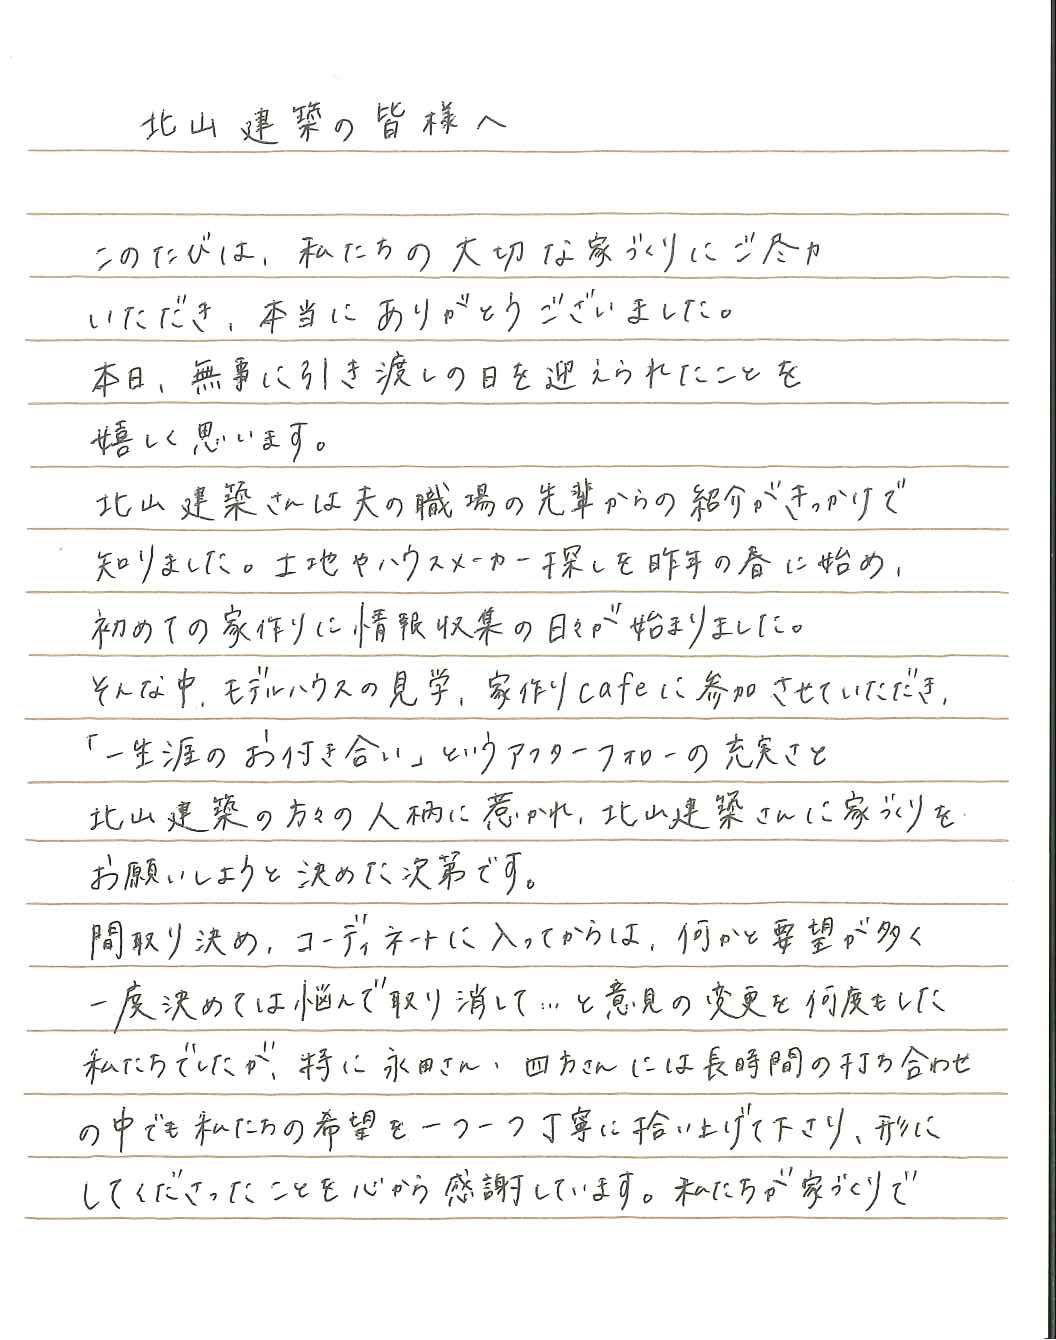 北山建築の皆様へ
このたびは、私たちの大切な家づくりにご尽力
いただき、本当にありがとうございました。
本日、無事に引き渡しの日を迎えられたことを
嬉しく思います。
北山建築さんは夫の職場の先輩からの紹介がきっかけで
知りました。土地やハウスメーカー探しを昨年の春に始め、
初めての家作りに情報収集の日々が始まりました。
そんな中、モデルハウスの見学、家作りcafeに参加させていただき、
「一生涯のお付き合い」というアフターフォローの充実さと
北山建築の方々の人柄に惹かれ、北山建築さんに家づくりを
お願いしようと決めた次第です。
間取り決め、コーディネートに入ってからは、何かと要望が多く
一度決めては悩んで取り消して…と意見の変更を何度もした
私たちでしたが、特に永田さん、四方さんには長時間の打ち合わせ
の中でも私たちの希望を一つ一つ丁寧に拾い上げて下さり、形に
してくださったことを心から感謝しています。私たちが家づくりで